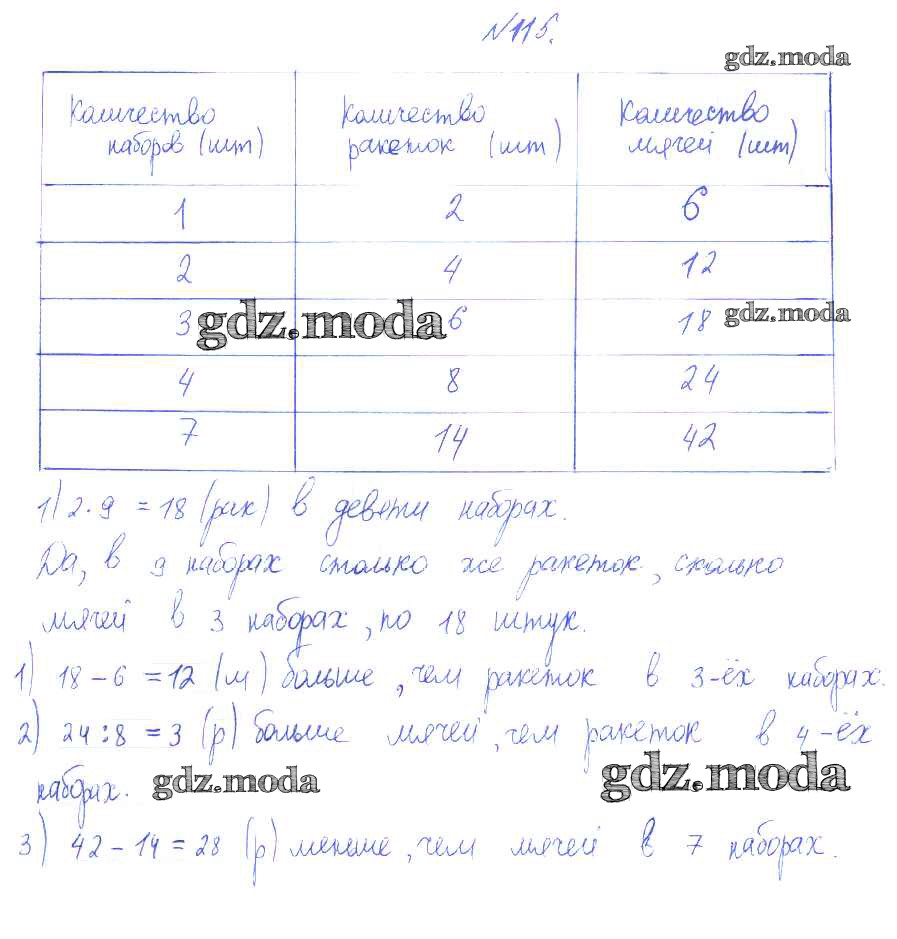 №115.
gdz.moda
Количество наборов (шт) Количество ракеток (шт) Количество мячей (шт)
1 2 6
2 4 12
3 6 18
gdz.moda gdz.moda
4 8 24
7 14 42
1) 2·9 = 18 (рак) в девяти наборах.
Да, в 9 наборах столько же ракеток, сколько
мячей в 3 наборах, по 18 штук.
1) 18 - 6 = 12 (м) больше, чем ракеток в 3-ёх наборах.
2) 24 : 8 = 3 (р) больше мячей, чем ракеток в 4-ёх
наборах.
gdz.moda gdz.moda
3) 42 - 14 = 28 (р) меньше, чем мячей в 7 наборах.